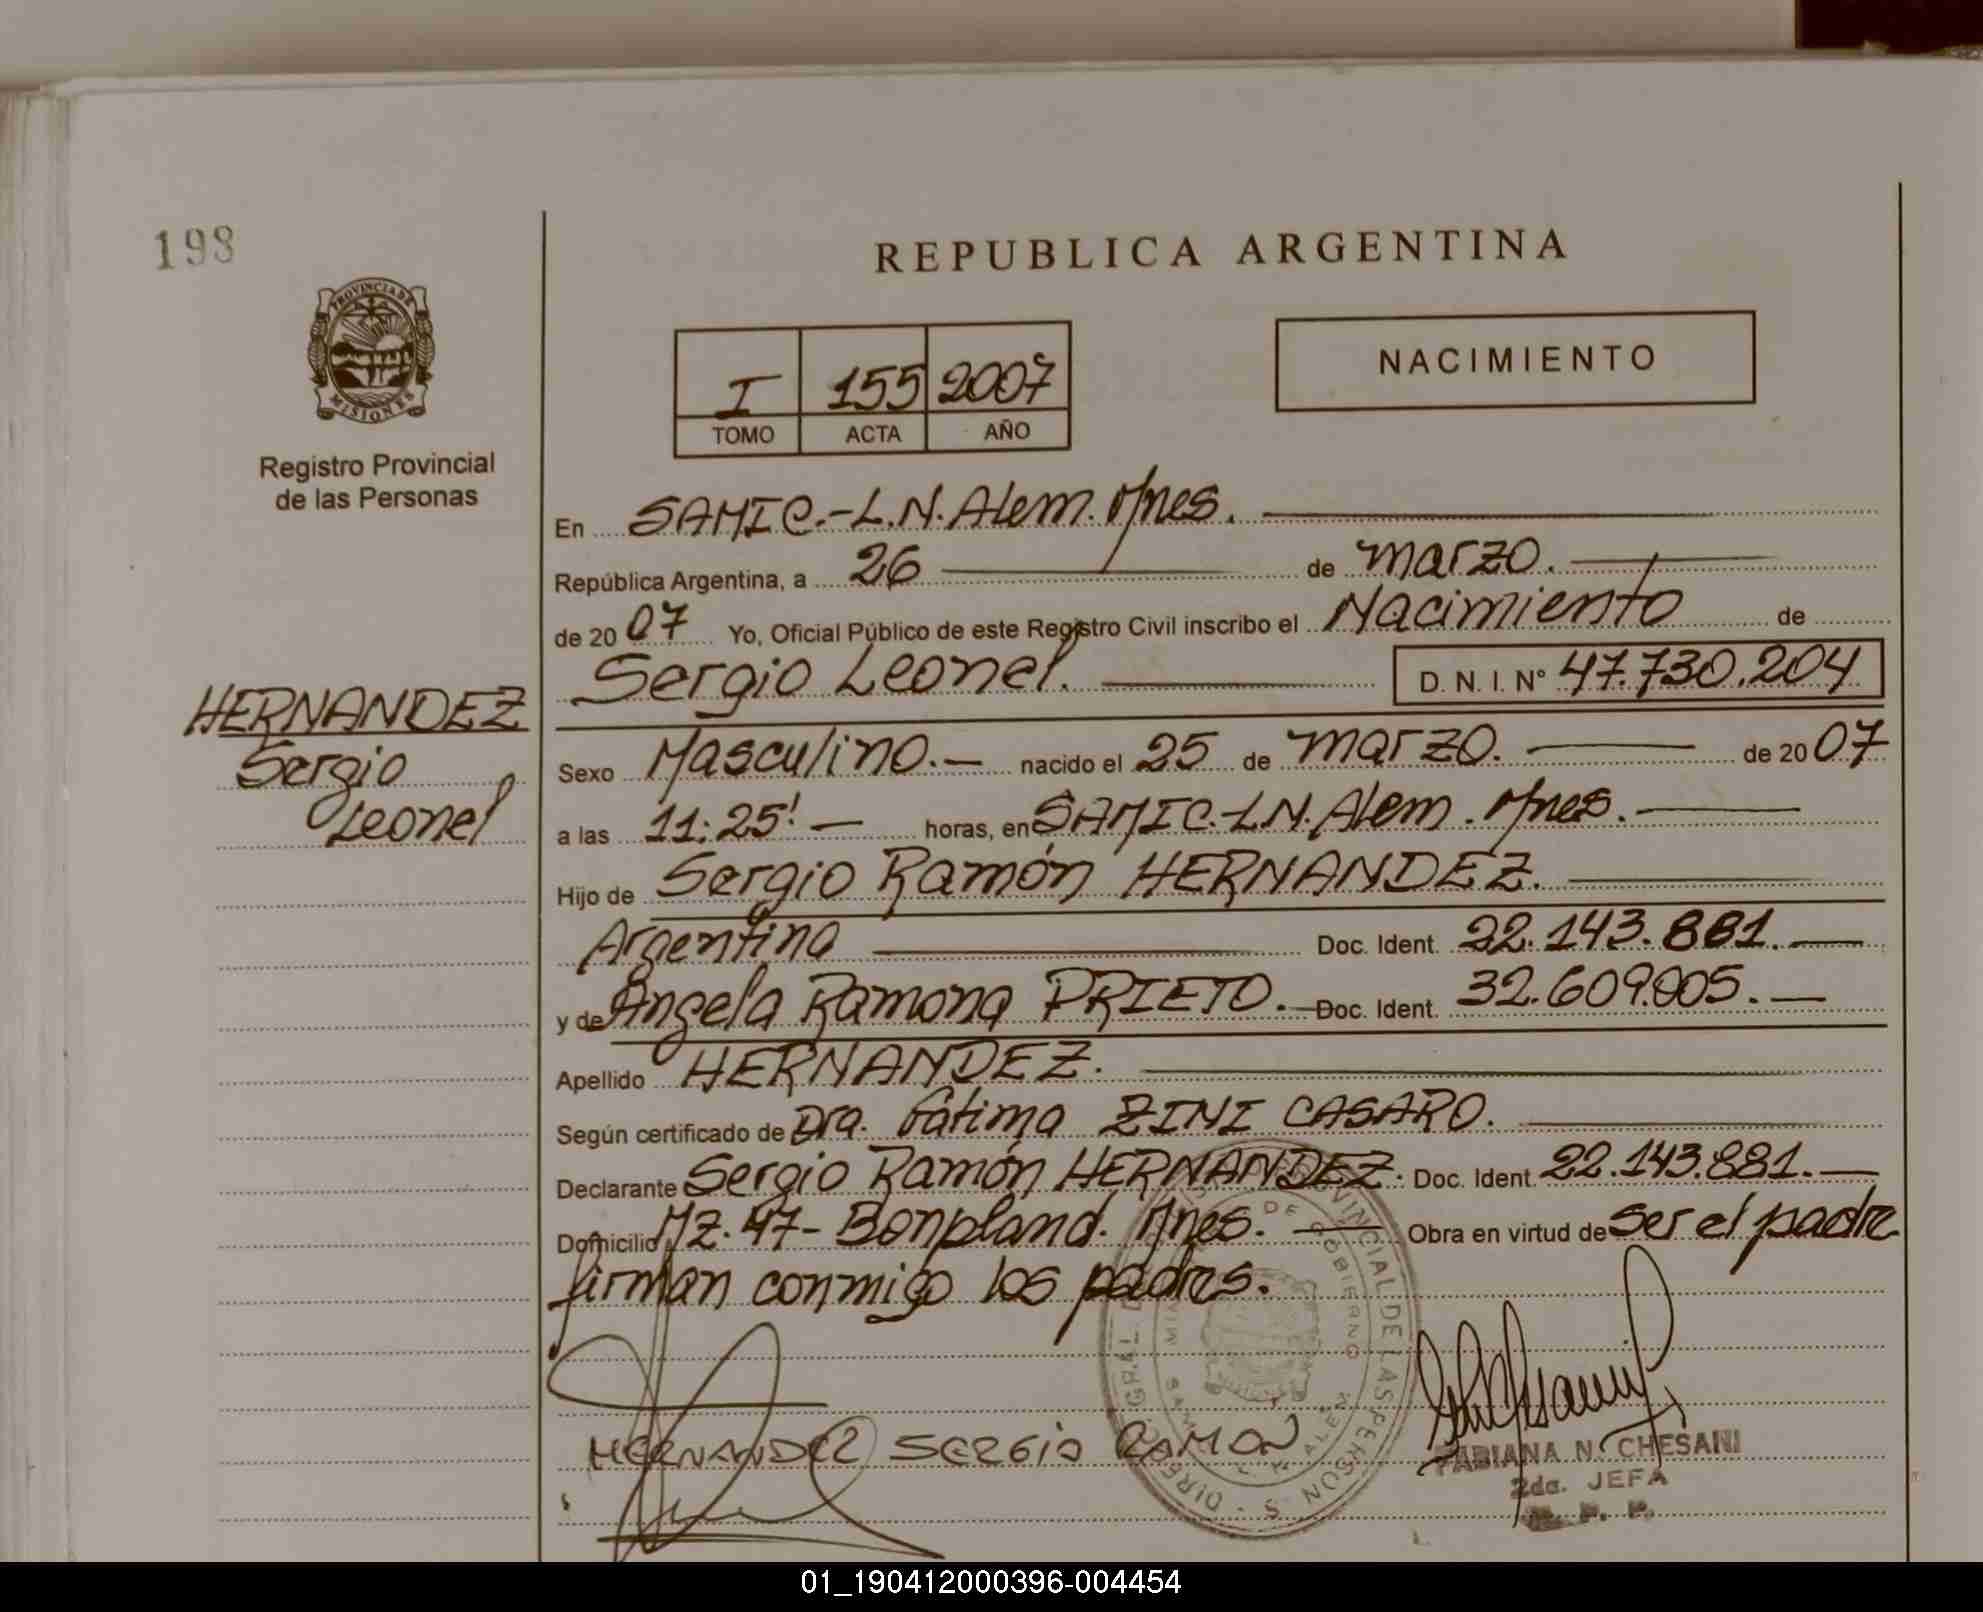 198
REPUBLICA ARGENTINA
PROVINCIA DE
MISIONES
Registro Provincial
de las Personas
I 155 2007
TOMO ACTA AÑO
NACIMIENTO
En SAMIC.-L.N.Alem. Mnes.
República Argentina, a 26 de marzo.
de 2007 Yo, Oficial Público de este Registro Civil inscribo el Nacimiento de
Sergio Leonel. D. N. I. N° 47.730.204
HERNANDEZ
Sergio
Leonel
Sexo Masculino.- nacido el 25 de marzo. de 2007
a las 11:25' horas, en SAMIC.L.N.Alem. Mnes.
Hijo de Sergio Ramón HERNANDEZ.
Argentina Doc. Ident. 22.143.881.
y de Angela Ramona PRIETO. Doc. Ident. 32.609.005.
Apellido HERNANDEZ.
Según certificado de Dra. Fátima ZINI CASARO.
Declarante Sergio Ramón HERNANDEZ. Doc. Ident. 22.143.881.
Domicilio Mz.47- Bonpland. Mnes. Obra en virtud de ser el padre
firman conmigo los padres.
HERNANDEZ SERGIO RAMON
FABIANA N. CHESANI
2da. JEFA
01_190412000396-004454